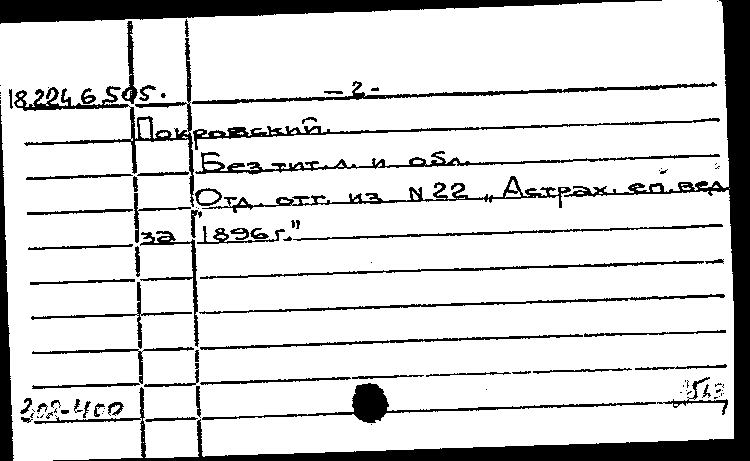 18.224.6.505. – 2 -
Покровский.
Без тит. л. и обл.
"Отд. отт. из N 22 „Астрах. еп. вед.
за 1896 г."
202-400